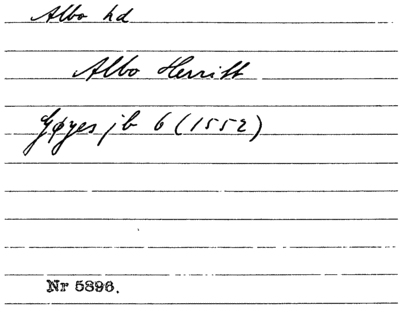 Albo hd
Albo Herritt
Gøyes jb 6 (1552)
Nr 5896.